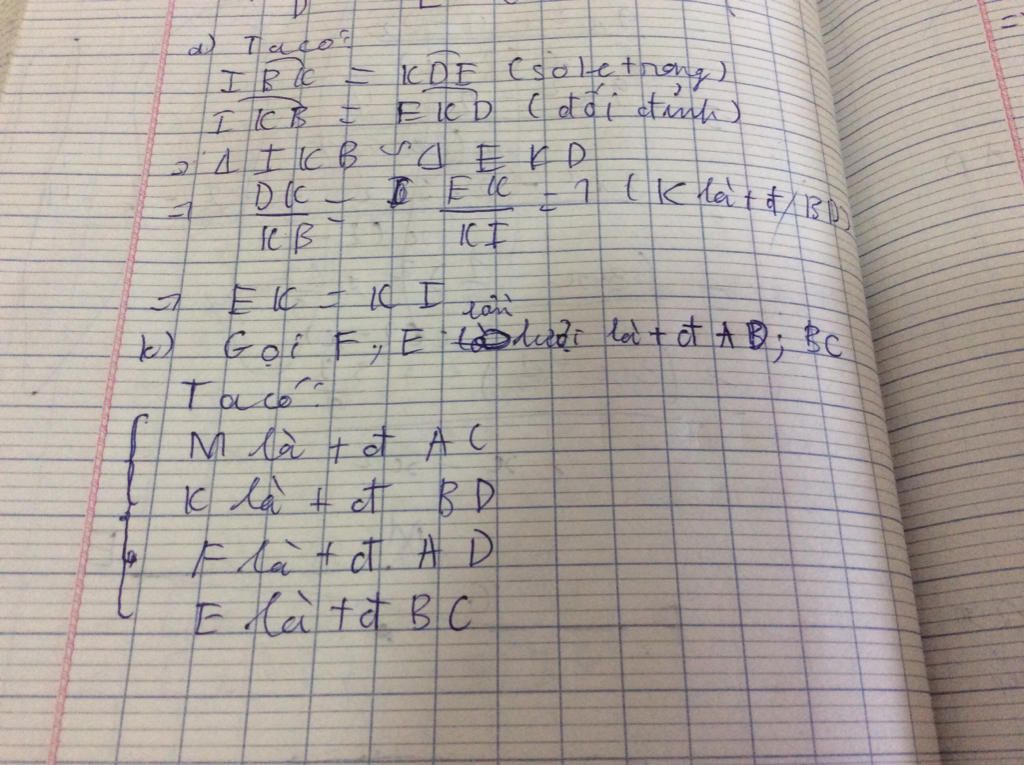 a) Ta có:
IBK = KDE (so le trong)
IKB = EKD (đối đỉnh)
=> Δ IKB ∽ Δ EKD
=> DK/KB = EK/KI = 1 (K là tđ BD)
=> EK = KI
b) Gọi F, E lần lượt là tđ AD; BC
Ta có:
M là tđ AC
K là tđ BD
F là tđ AD
E là tđ BC